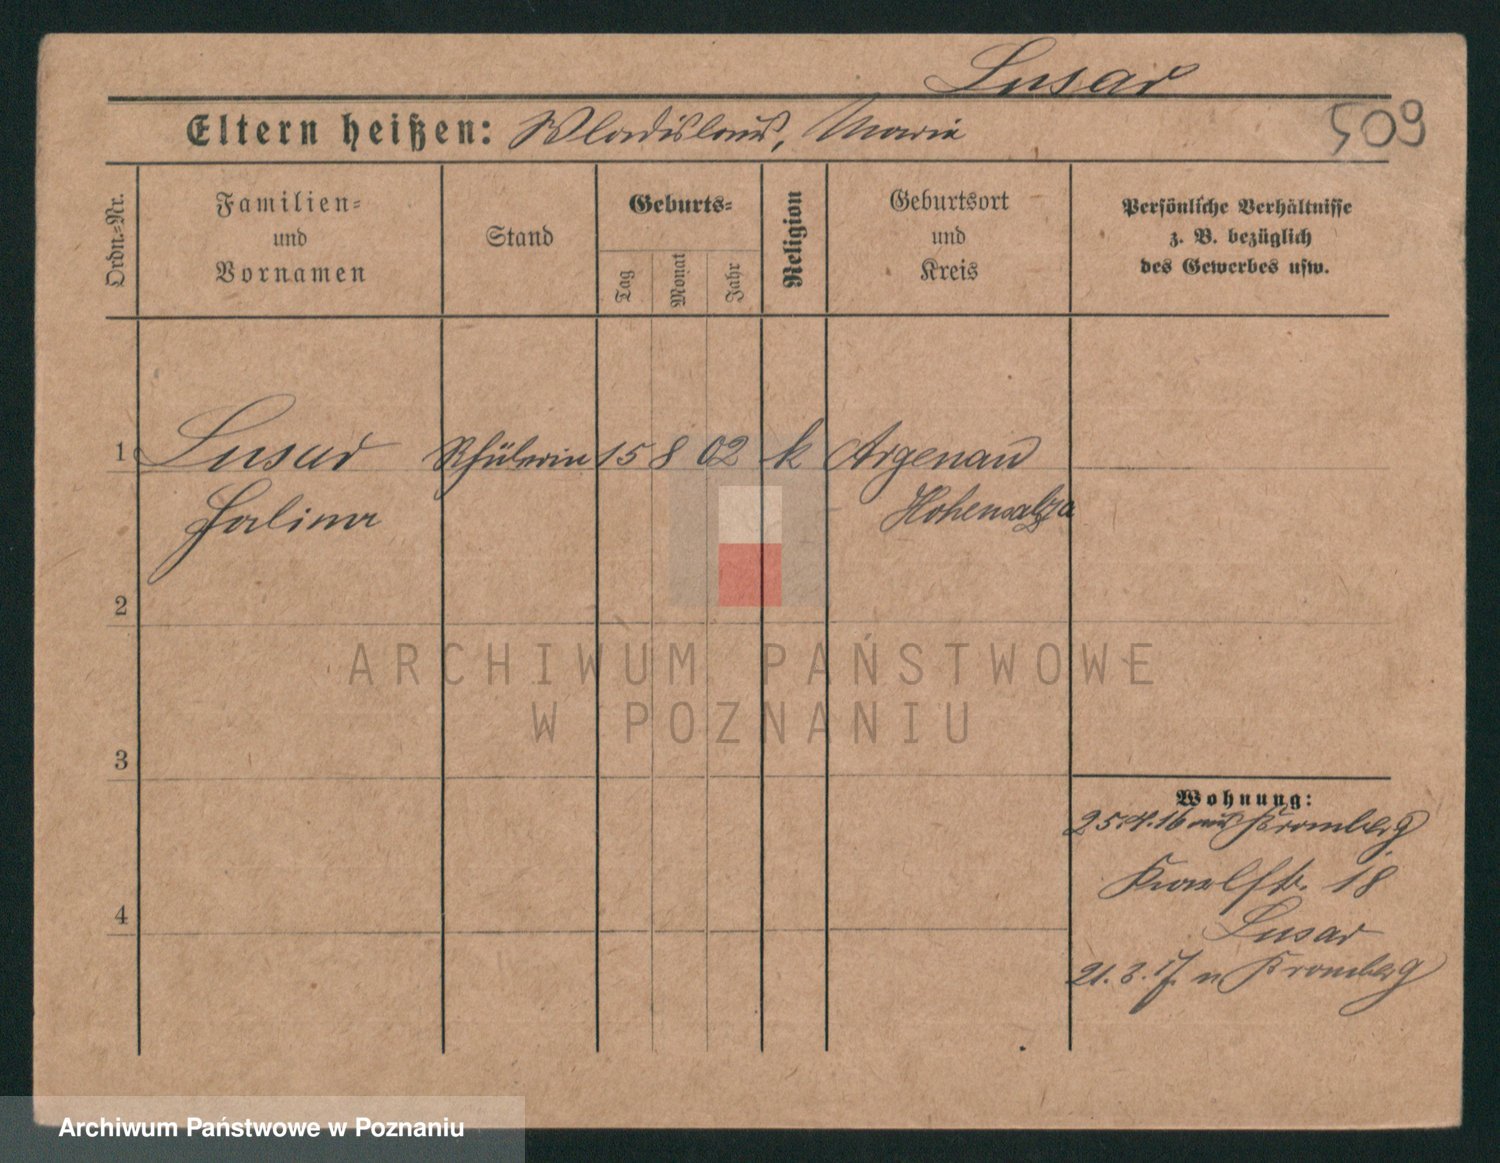 Lusar
Eltern heißen: Wladislaus, Marie
509
Ordn.-Nr.
Familien-
und
Vornamen
Stand
Geburts-
Tag
Monat
Jahr
Religion
Geburtsort
und
Kreis
Persönliche Verhältnisse
z. B. bezüglich
des Gewerbes usw.
1 Lusar Schülerin 15 8 02 k Argenau
Halina Hohensalza
2
3
4
Wohnung:
25.4.16 aus Bromberg
Karlstr. 18
Lusar
21.3.17. n Bromberg
ARCHIWUM PAŃSTWOWE
W POZNANIU
Archiwum Państwowe w Poznaniu